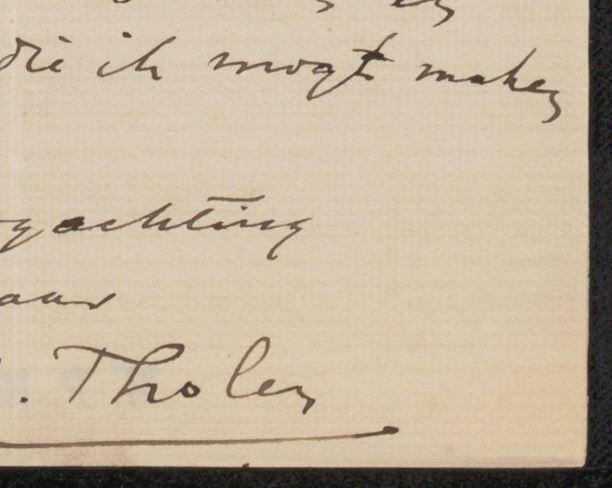 die ik mogt maken
gachting
aar
. Tholen